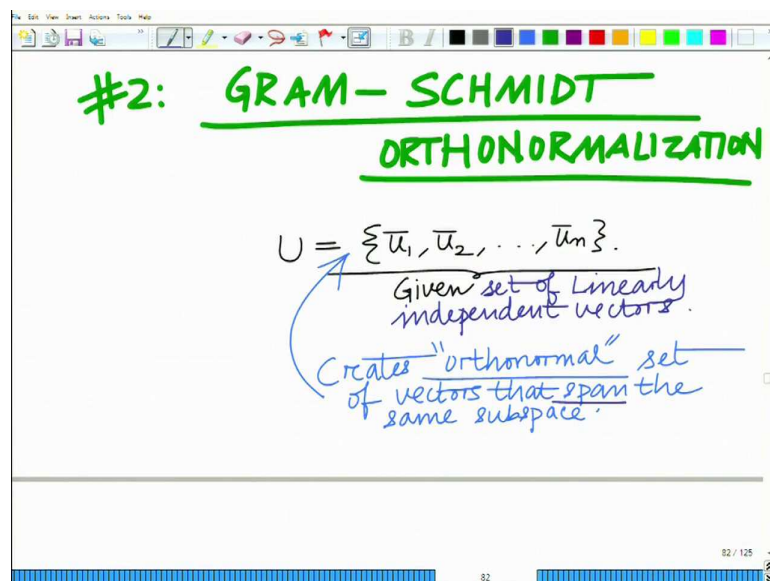 File Edit View Insert Actions Tools Help
B I
#2: GRAM - SCHMIDT
ORTHONORMALIZATION
U = {ū₁, ū₂, ..., ūₙ}.
Given set of Linearly
independent vectors.
Creates "orthonormal" set
of vectors that span the
same subspace.
82 / 125
82